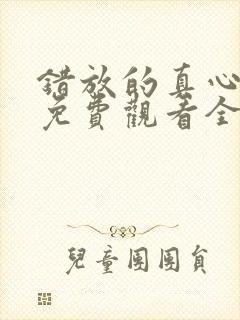 錯放的真心
免費觀看全
兒童團團員